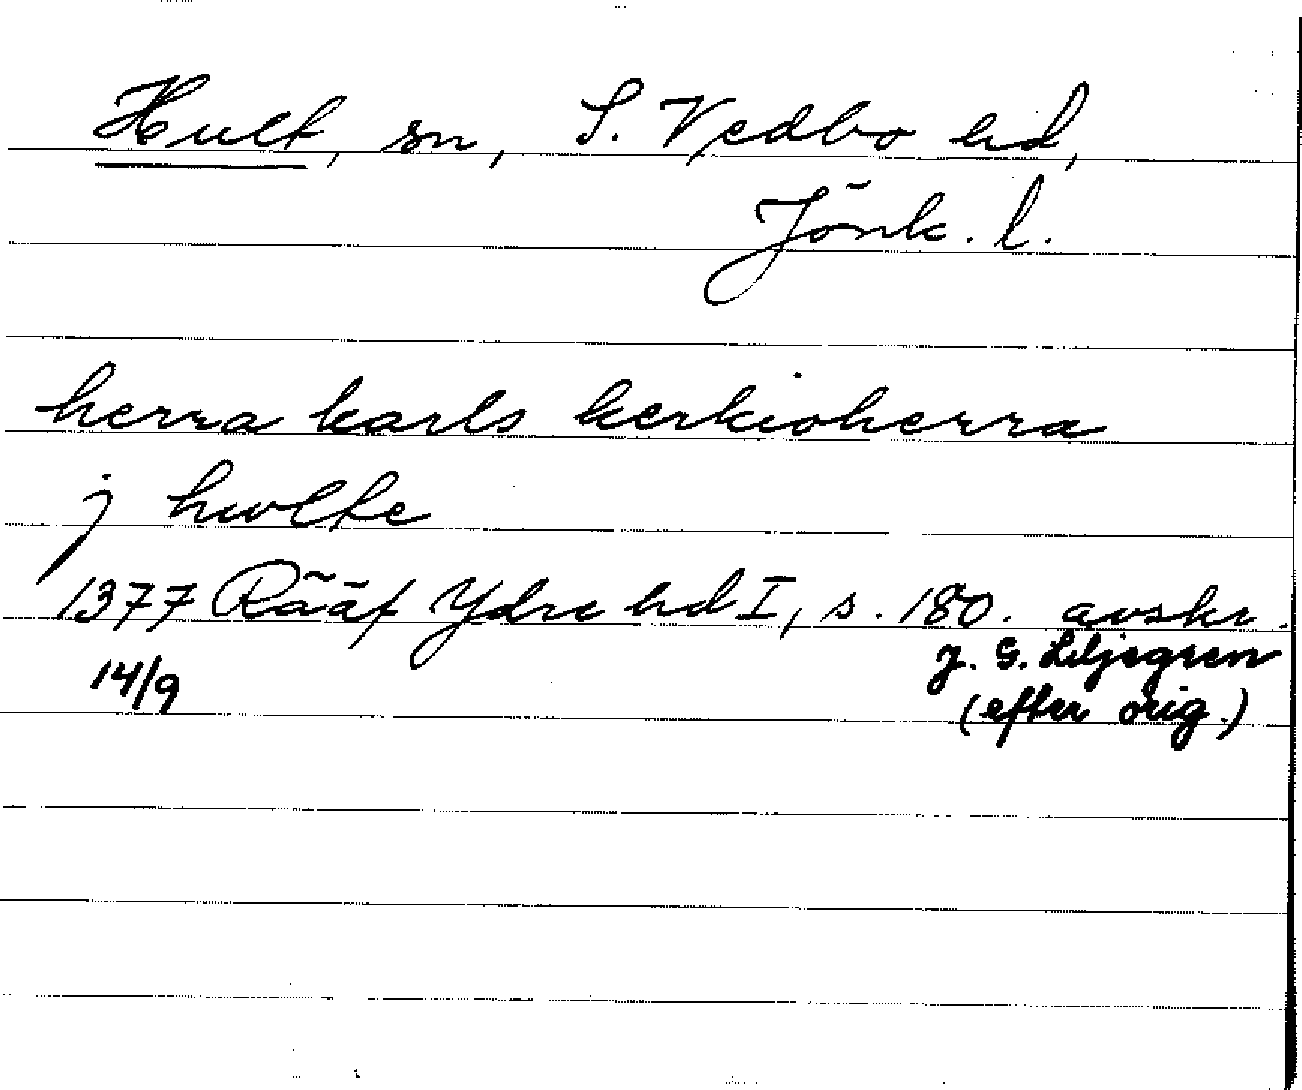 Hult, sn, S. Vedbo hd,
Jönk. l.
herra karls kerkioherra
j hwlte
1377 Rääf Ydre hd I, s. 180. avskr.
14/9 J. G. Liljegren
(efter orig.)